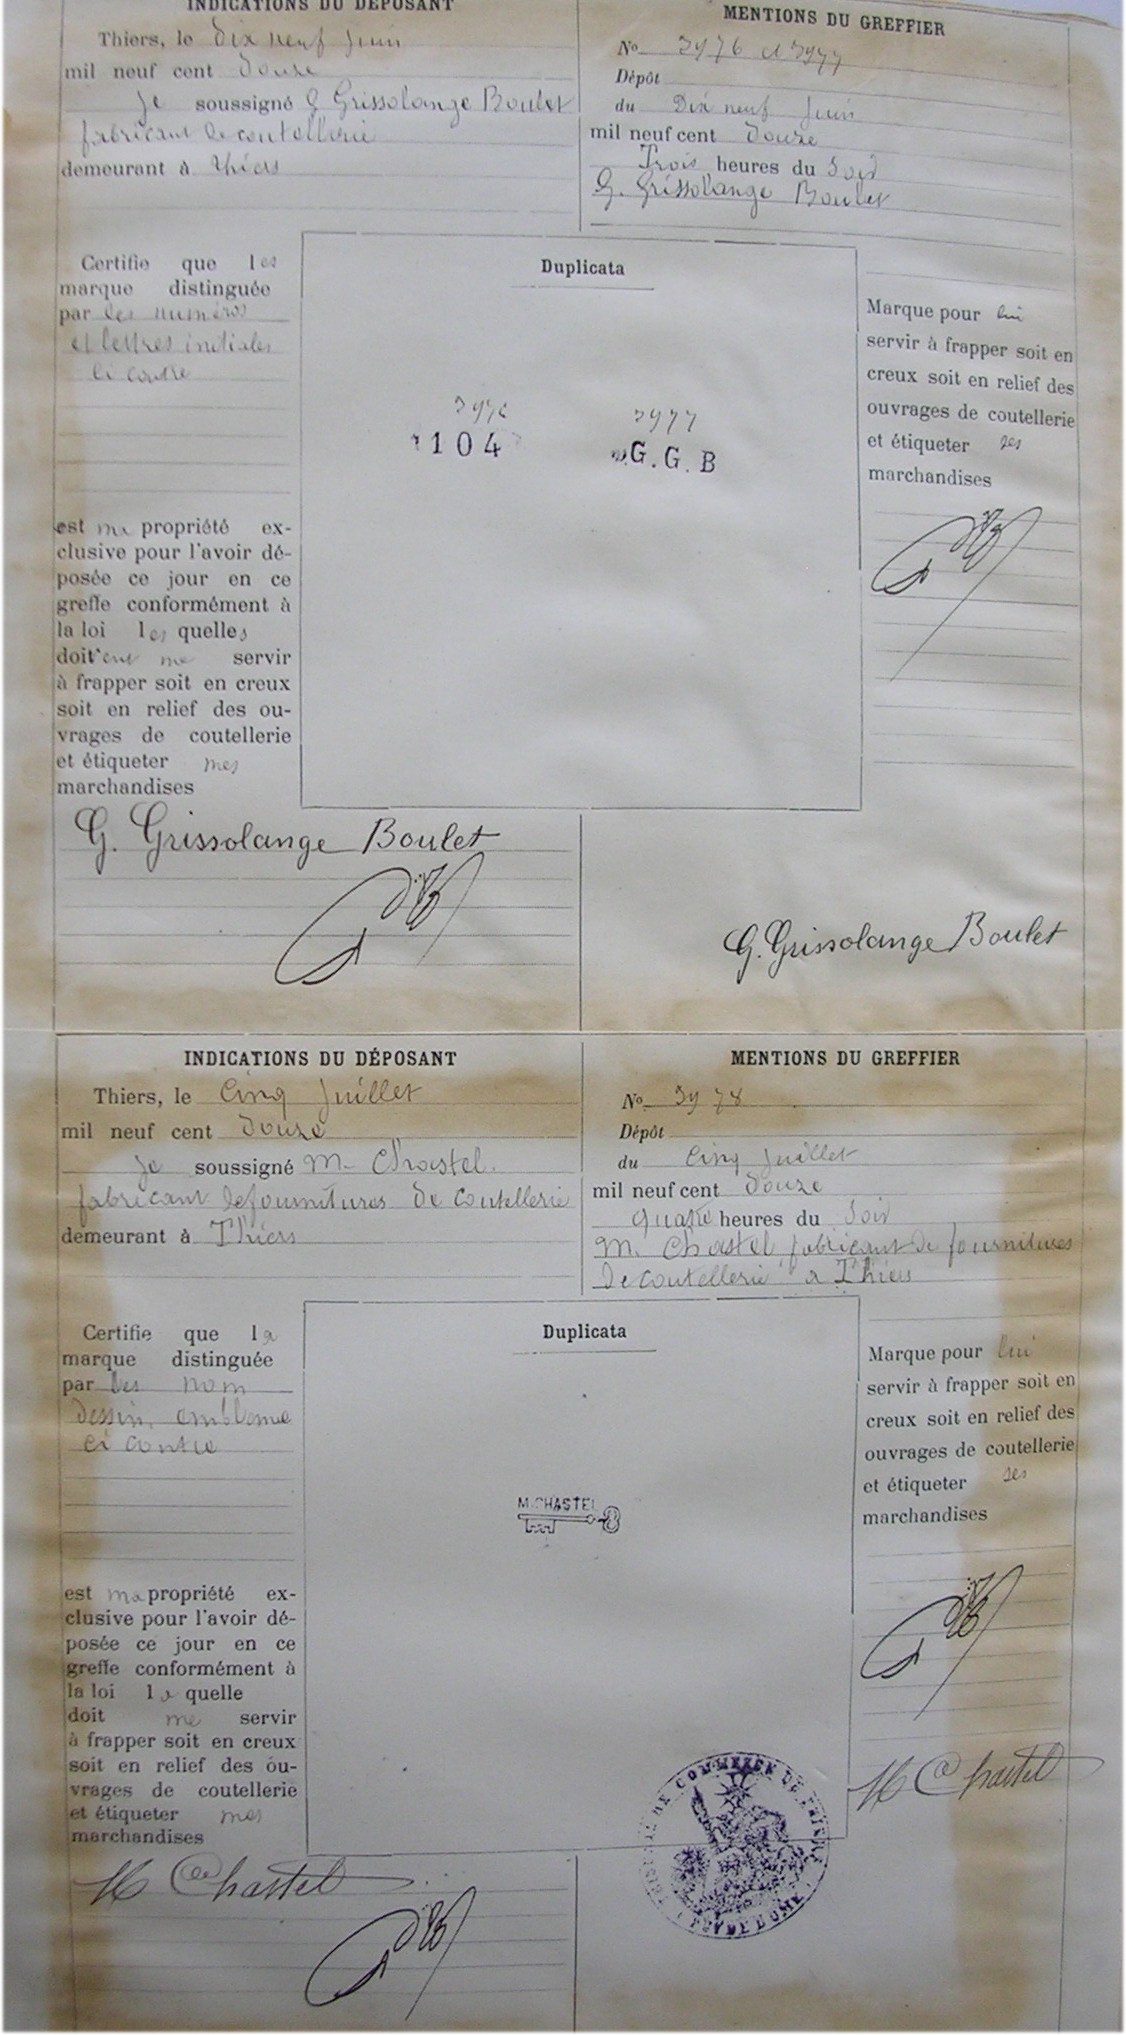 INDICATIONS DU DÉPOSANT
Thiers, le Dix neuf Juin
mil neuf cent Douze
Je soussigné G Grissolange Boulet
fabricant de coutellerie
demeurant à Thiers
MENTIONS DU GREFFIER
No 3976 et 3977
Dépôt
du Dix neuf Juin
mil neuf cent Douze
Trois heures du Soir
G. Grissolange Boulet
Certifie que les
marque distinguée
par les numéros
et lettres initiales
ci contre
est ma propriété ex-
clusive pour l'avoir dé-
posée ce jour en ce
greffe conformément à
la loi les quelles
doivent me servir
à frapper soit en creux
soit en relief des ou-
vrages de coutellerie
et étiqueter mes
marchandises
G. Grissolange Boulet
Duplicata
3976 3977
104 G.G.B
Marque pour lui
servir à frapper soit en
creux soit en relief des
ouvrages de coutellerie
et étiqueter ses
marchandises
G. Grissolange Boulet
INDICATIONS DU DÉPOSANT
Thiers, le Cinq Juillet
mil neuf cent Douze
Je soussigné M. Chastel
fabricant de fournitures de coutellerie
demeurant à Thiers
MENTIONS DU GREFFIER
No 3978
Dépôt
du Cinq Juillet
mil neuf cent Douze
quatre heures du Soir
M. Chastel fabricant de fournitures
de coutellerie à Thiers
Certifie que la
marque distinguée
par les nom
dessin, emblème
ci contre
est ma propriété ex-
clusive pour l'avoir dé-
posée ce jour en ce
greffe conformément à
la loi la quelle
doit me servir
à frapper soit en creux
soit en relief des ou-
vrages de coutellerie
et étiqueter mes
marchandises
M Chastel
Duplicata
M.CHASTEL
Marque pour lui
servir à frapper soit en
creux soit en relief des
ouvrages de coutellerie
et étiqueter ses
marchandises
M Chastel
DE COMMERCE DE THIERS